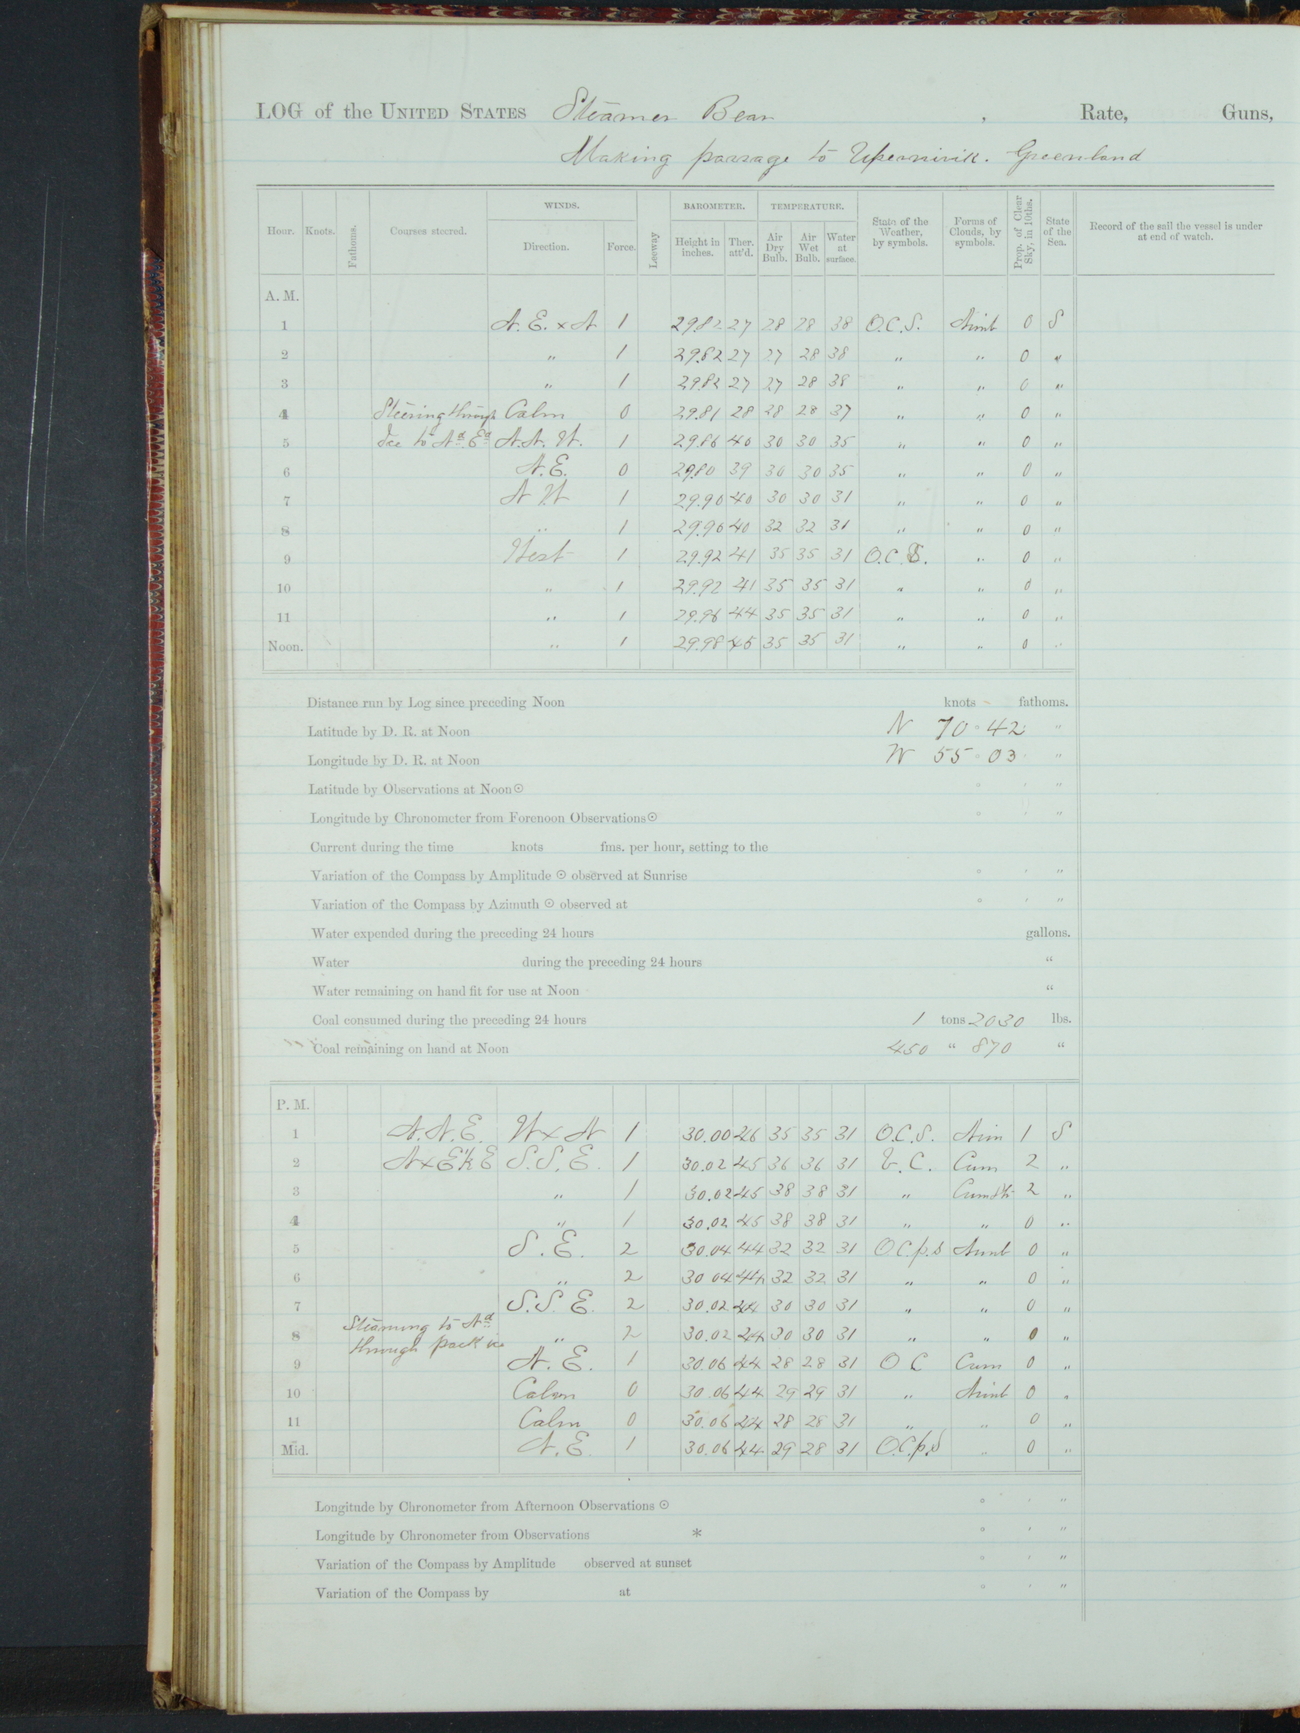 LOG of the UNITED STATES Steamer Bear , Rate, Guns,
Making passage to Upernivik. Greenland
Hour. Knots. Fathoms. Courses steered. WINDS. Direction. Force. Leeway BAROMETER. Height in inches. Ther. att'd. TEMPERATURE. Air Dry Bulb. Air Wet Bulb. Water at surface. State of the Weather, by symbols. Forms of Clouds, by symbols. Prop. of Clear Sky, in 10ths. State of the Sea. Record of the sail the vessel is under at end of watch.
A. M.
1 N. E. x N 1 29.82 27 28 28 38 O.C.S. Nimb 0 S
2 " 1 29.82 27 27 28 38 " " 0 "
3 " 1 29.82 27 27 28 38 " " 0 "
4 Steering through Calm 0 29.81 28 28 28 37 " " 0 "
5 Ice to Nd. Ed N.N.W. 1 29.86 40 30 30 35 " " 0 "
6 N.E. 0 29.80 39 30 30 35 " " 0 "
7 N W 1 29.90 40 30 30 31 " " 0 "
8 " 1 29.90 40 32 32 31 " " 0 "
9 West 1 29.92 41 35 35 31 O.C.S. " 0 "
10 " 1 29.92 41 35 35 31 " " 0 "
11 " 1 29.96 44 35 35 31 " " 0 "
Noon. " 1 29.98 46 35 35 31 " " 0 "
Distance run by Log since preceding Noon knots fathoms.
Latitude by D. R. at Noon N 70 ° 42 "
Longitude by D. R. at Noon W 55 ° 03 "
Latitude by Observations at Noon ☉ ° ' "
Longitude by Chronometer from Forenoon Observations ☉ ° ' "
Current during the time knots fms. per hour, setting to the
Variation of the Compass by Amplitude ☉ observed at Sunrise ° ' "
Variation of the Compass by Azimuth ☉ observed at ° ' "
Water expended during the preceding 24 hours gallons.
Water during the preceding 24 hours "
Water remaining on hand fit for use at Noon "
Coal consumed during the preceding 24 hours 1 tons 2030 lbs.
Coal remaining on hand at Noon 450 " 870 "
P. M.
1 N.N.E. W x N 1 30.00 46 35 35 31 O.C.S. Nim 1 S
2 N x E ½ E S.S.E. 1 30.02 45 36 36 31 b.C. Cum 2 "
3 " 1 30.02 45 38 38 31 " Cum Str 2 "
4 " 1 30.02 45 38 38 31 " " 0 "
5 S. E. 2 30.04 44 32 32 31 O.C.p.S Nimb 0 "
6 " 2 30 04 44 32 32 31 " " 0 "
7 S.S. E. 2 30.02 44 30 30 31 " " 0 "
Steaming to Nd
8 through pack ice " 2 30.02 44 30 30 31 " " 0 "
9 N. E. 1 30.06 44 28 28 31 O C Cum 0 "
10 Calm 0 30.06 44 29 29 31 " Nimb 0 "
11 Calm 0 30.06 44 28 28 31 " " 0 "
Mid. N. E. 1 30.06 44 29 28 31 O.C.p.S " 0 "
Longitude by Chronometer from Afternoon Observations ☉ ° ' "
Longitude by Chronometer from Observations * ° ' "
Variation of the Compass by Amplitude observed at sunset ° ' "
Variation of the Compass by at ° ' "